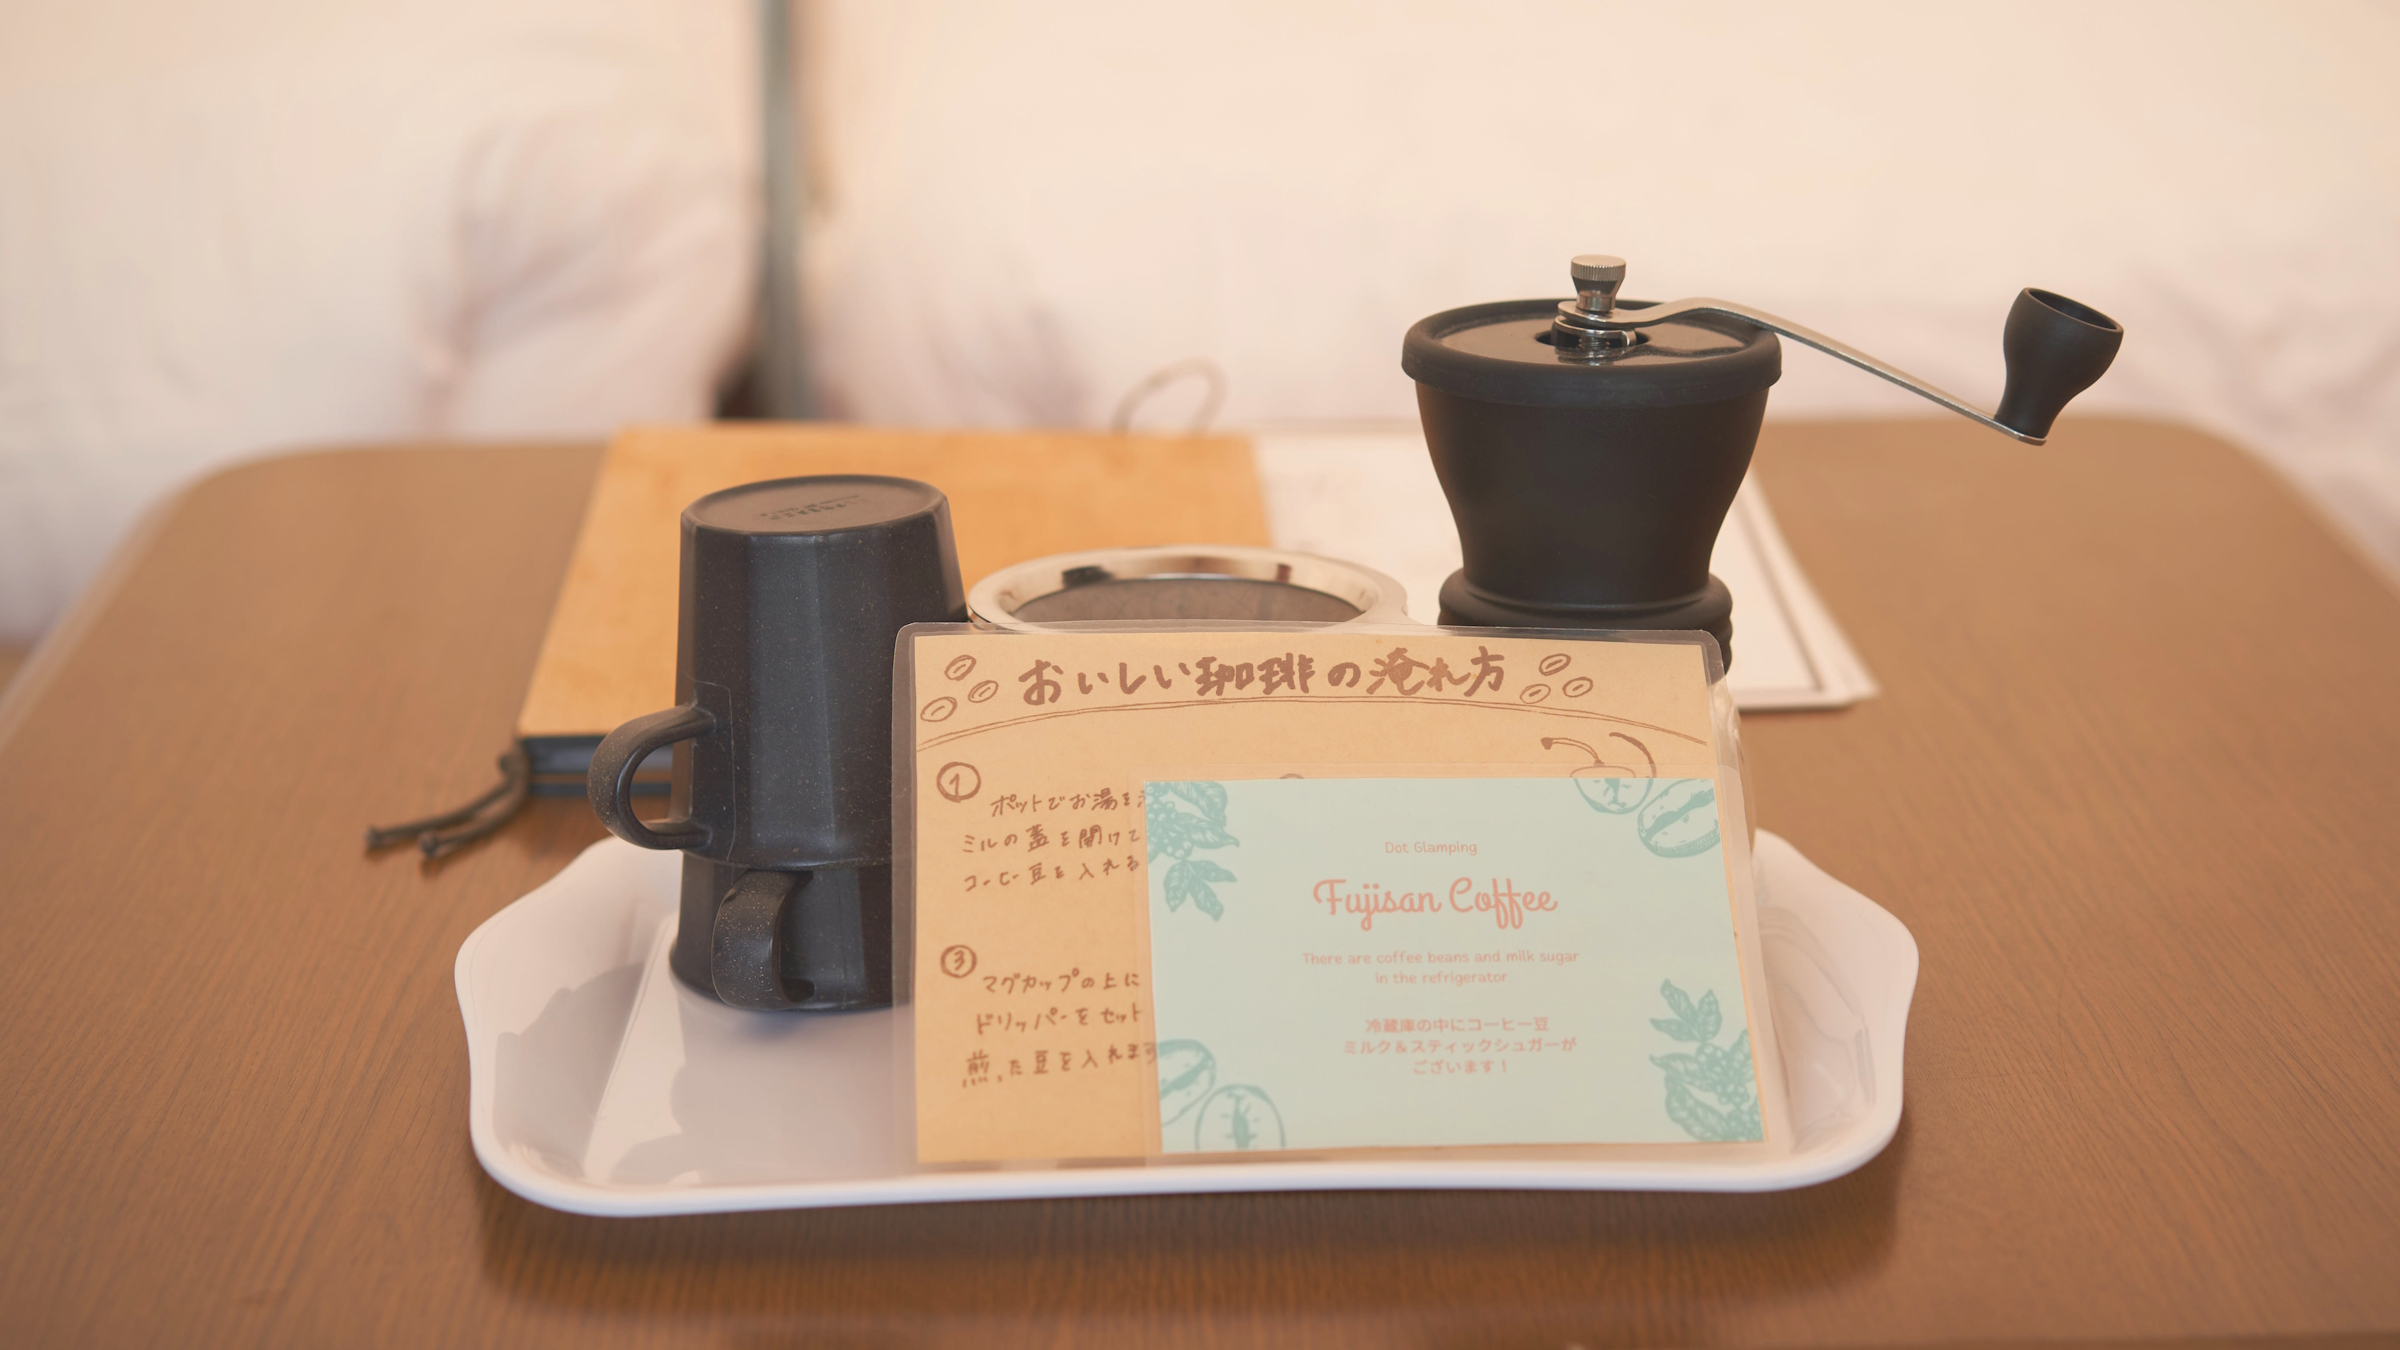 おいしい珈琲の淹れ方
①
ポットでお湯を
ミルの蓋を開けて
コーヒー豆を入れる
③
マグカップの上に
ドリッパーをセット
煎った豆を入れます
Dot Glamping
Fujisan Coffee
There are coffee beans and milk sugar
in the refrigerator
冷蔵庫の中にコーヒー豆
ミルク&スティックシュガーが
ございます!